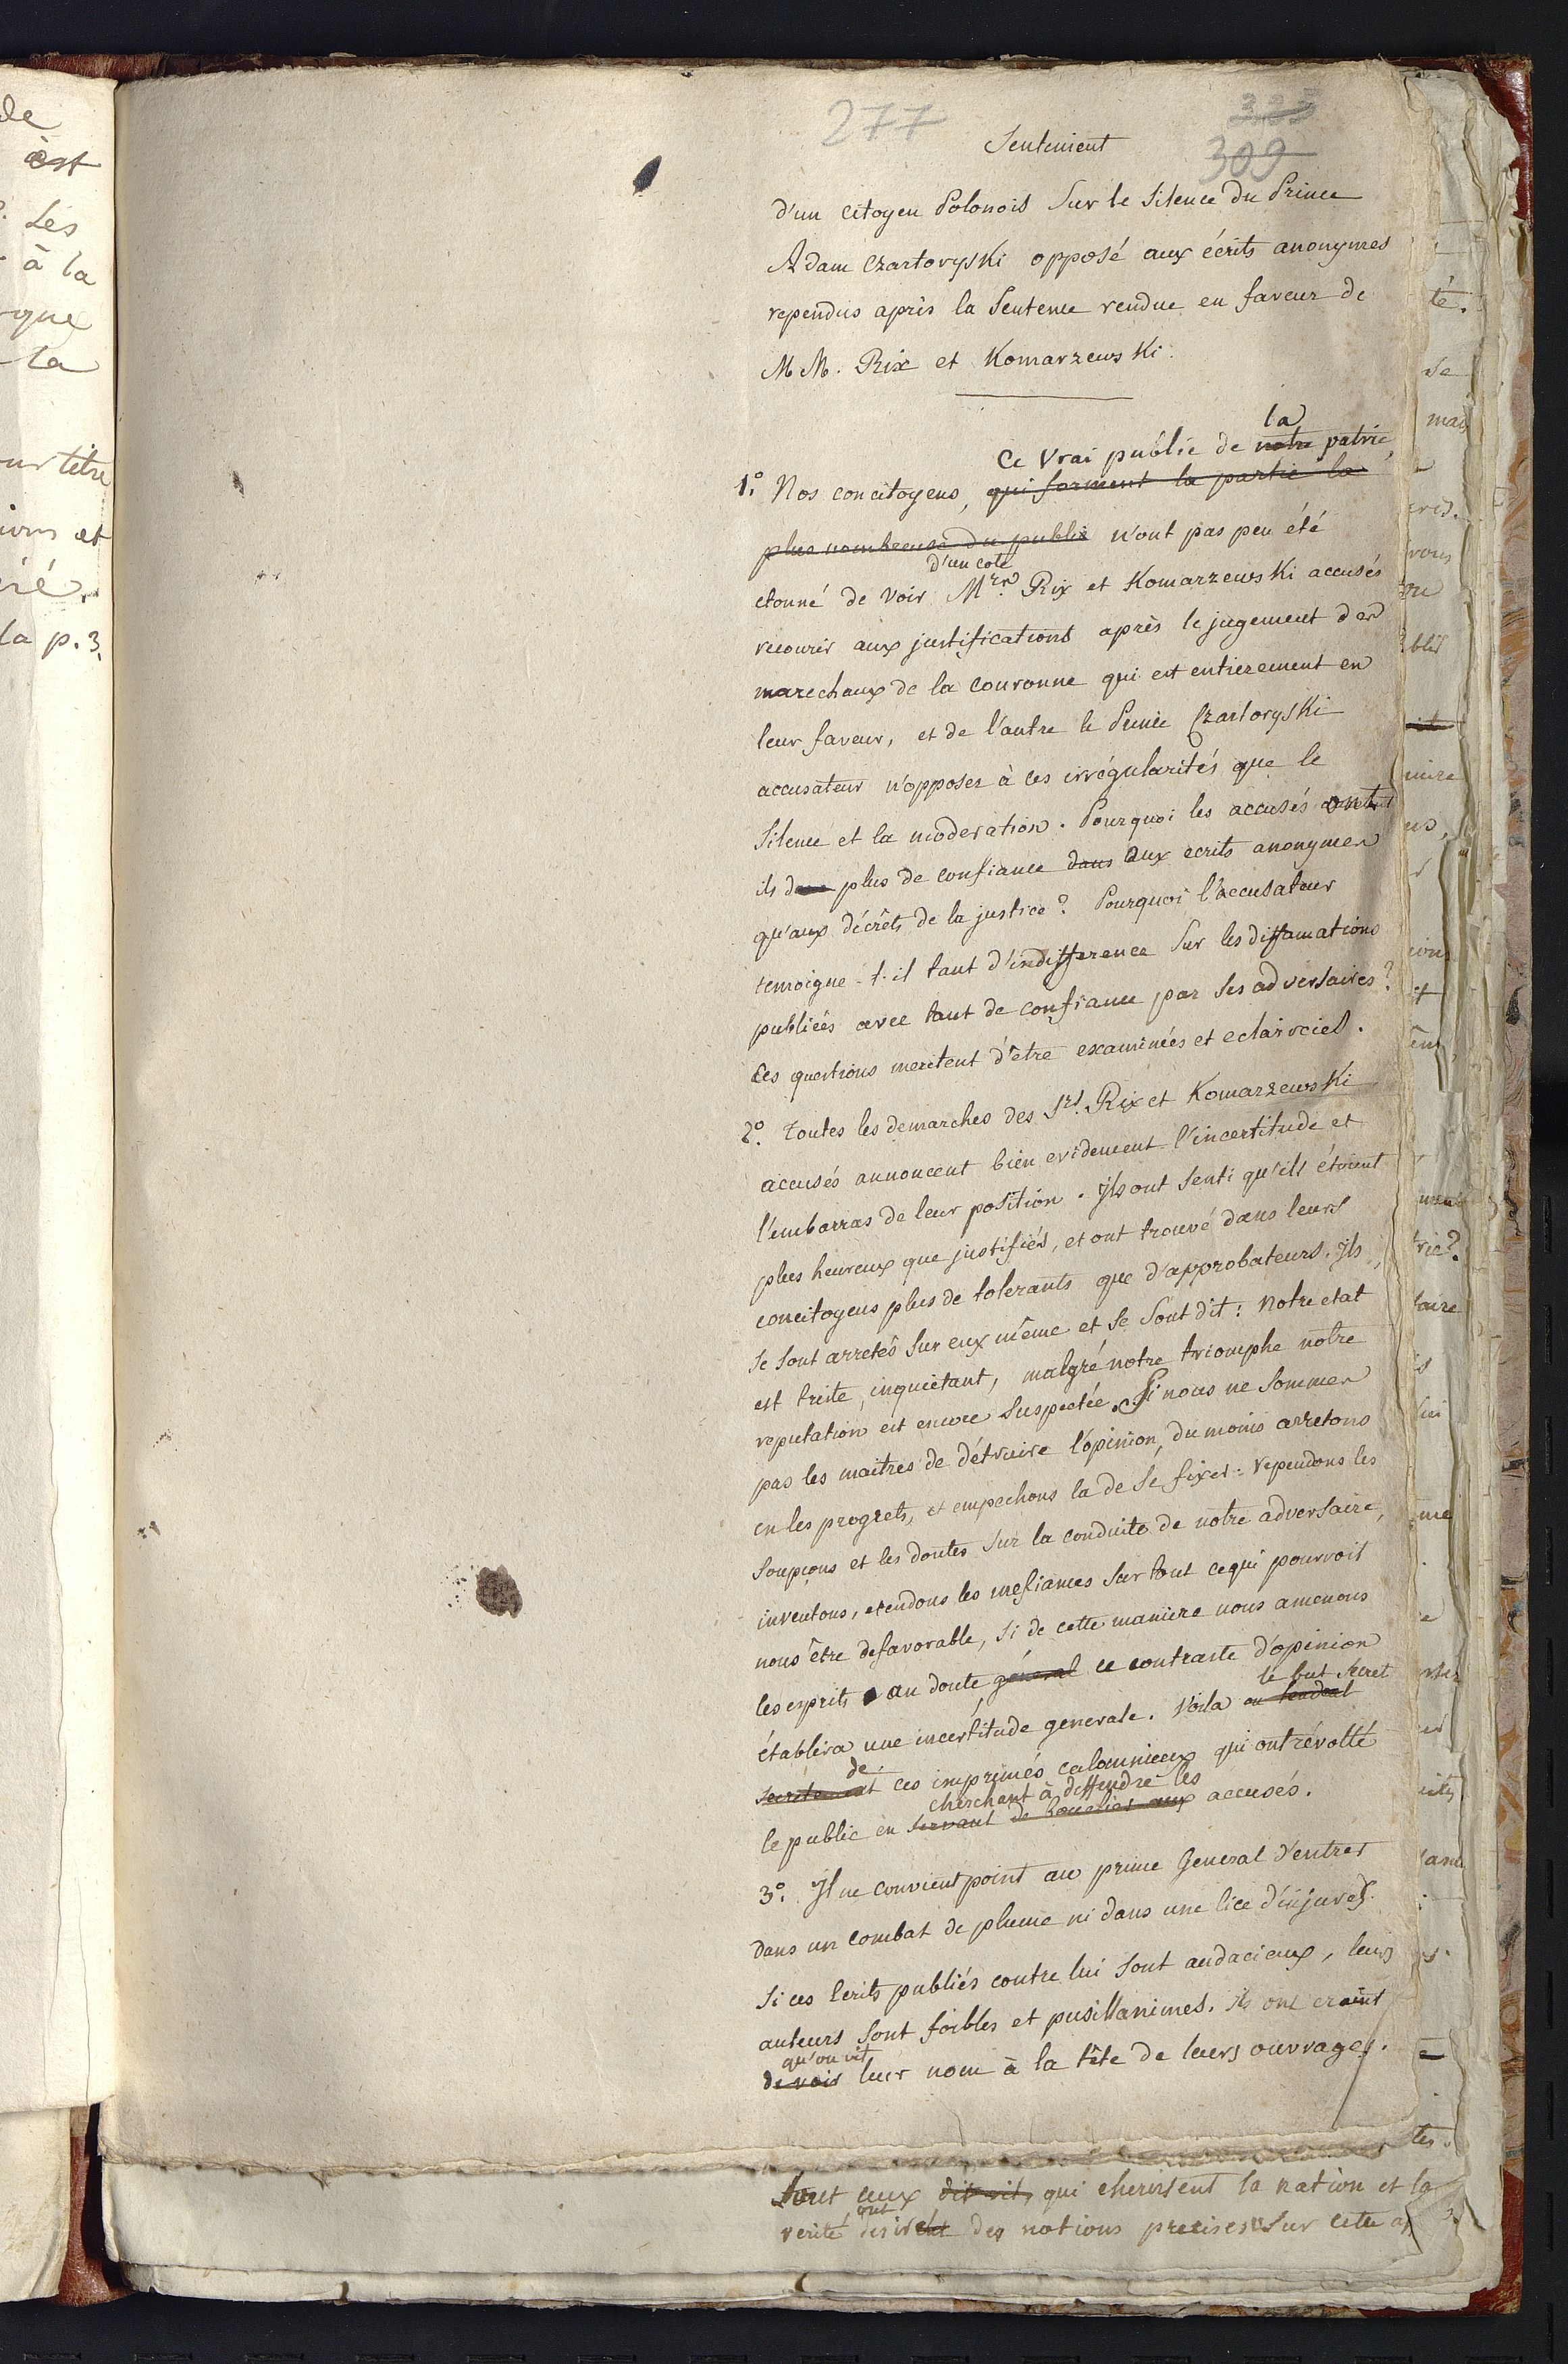 277
309
Sentiment
d'un citoyen Polonois Sur le Silence du Prince
Adam Czartoryski opposé aux écrits anonymes
rependus après la Sentence rendue en faveur de
M M. Rix et Komarzewski.
la
Ce Vrai public de notre patrie,
1.° Nos concitoyens, qui forment la partie la
plus nombreuse du public n'ont pas peu été
d'un coté
etonné de voir Mrs. Rix et Komarzewski accusés
recourir aux justifications après le jugement des
marechaux de la couronne qui est entierement en
leur faveur, et de l'autre le Prince Czartoryski
accusateur n'opposer à ces irrégularités que le
Silence et la moderation. Pourquoi les accusés ont
ils plus de confiance dans aux ecrits anonymes
qu'aux décrêts de la justice? Pourquoi l'accusateur
temoigne-t-il tant d'indifference Sur les diffamations
publiées avec tant de confiance par Ses adversaires?
Ces questions meritent d'être examinées et eclaircies.
2.° Toutes les demarches des Srs. Rix et Komarzewski
accusés annoncent bien evidement l'incertitude et
l'embarras de leur position. Ils ont Senti qu'ils étoient
plus heureux que justifiés, et ont trouvé dans leurs
concitoyens plus de tolerants que d'approbateurs. Ils
Se Sont arretés Sur eux même et Se Sont dit: Notre etat
est triste, inquietant, malgré notre triomphe notre
reputation est encore Suspectée. Si nous ne Sommes
pas les maitres de détruire l'opinion, du moins arretons
en les progrets, et empechons la de Se fixer: rependons les
Soupçons et les doutes Sur la conduite de notre adversaire,
inventons, etendons les mefiances Sur tout ce qui pourroit
nous être defavorable, Si de cette maniere nous amenons
les esprits au doute, géneral ce contraste d'opinion
le but Secret
établira une incertitude generale. Voila ou tendent
de
Secretement ces imprimés calomnieux qui ont révolté
cherchant à deffendre les
le public en Servant de bouclier aux accusés.
3.° Il ne convient point au prince General d'entrer
dans un combat de plume ni dans une lice d'injures.
Si ces Ecrits publiés contre lui Sont audacieux, leurs
auteurs Sont foibles et pusillanimes. ils ont craint
qu'on vit
de voir leur nom à la tête de leurs ouvrages.
qui cherissent la nation et la
ont
verité des notions precises Sur cette
de
est
Les
à la
que
la
et
la p. 3.